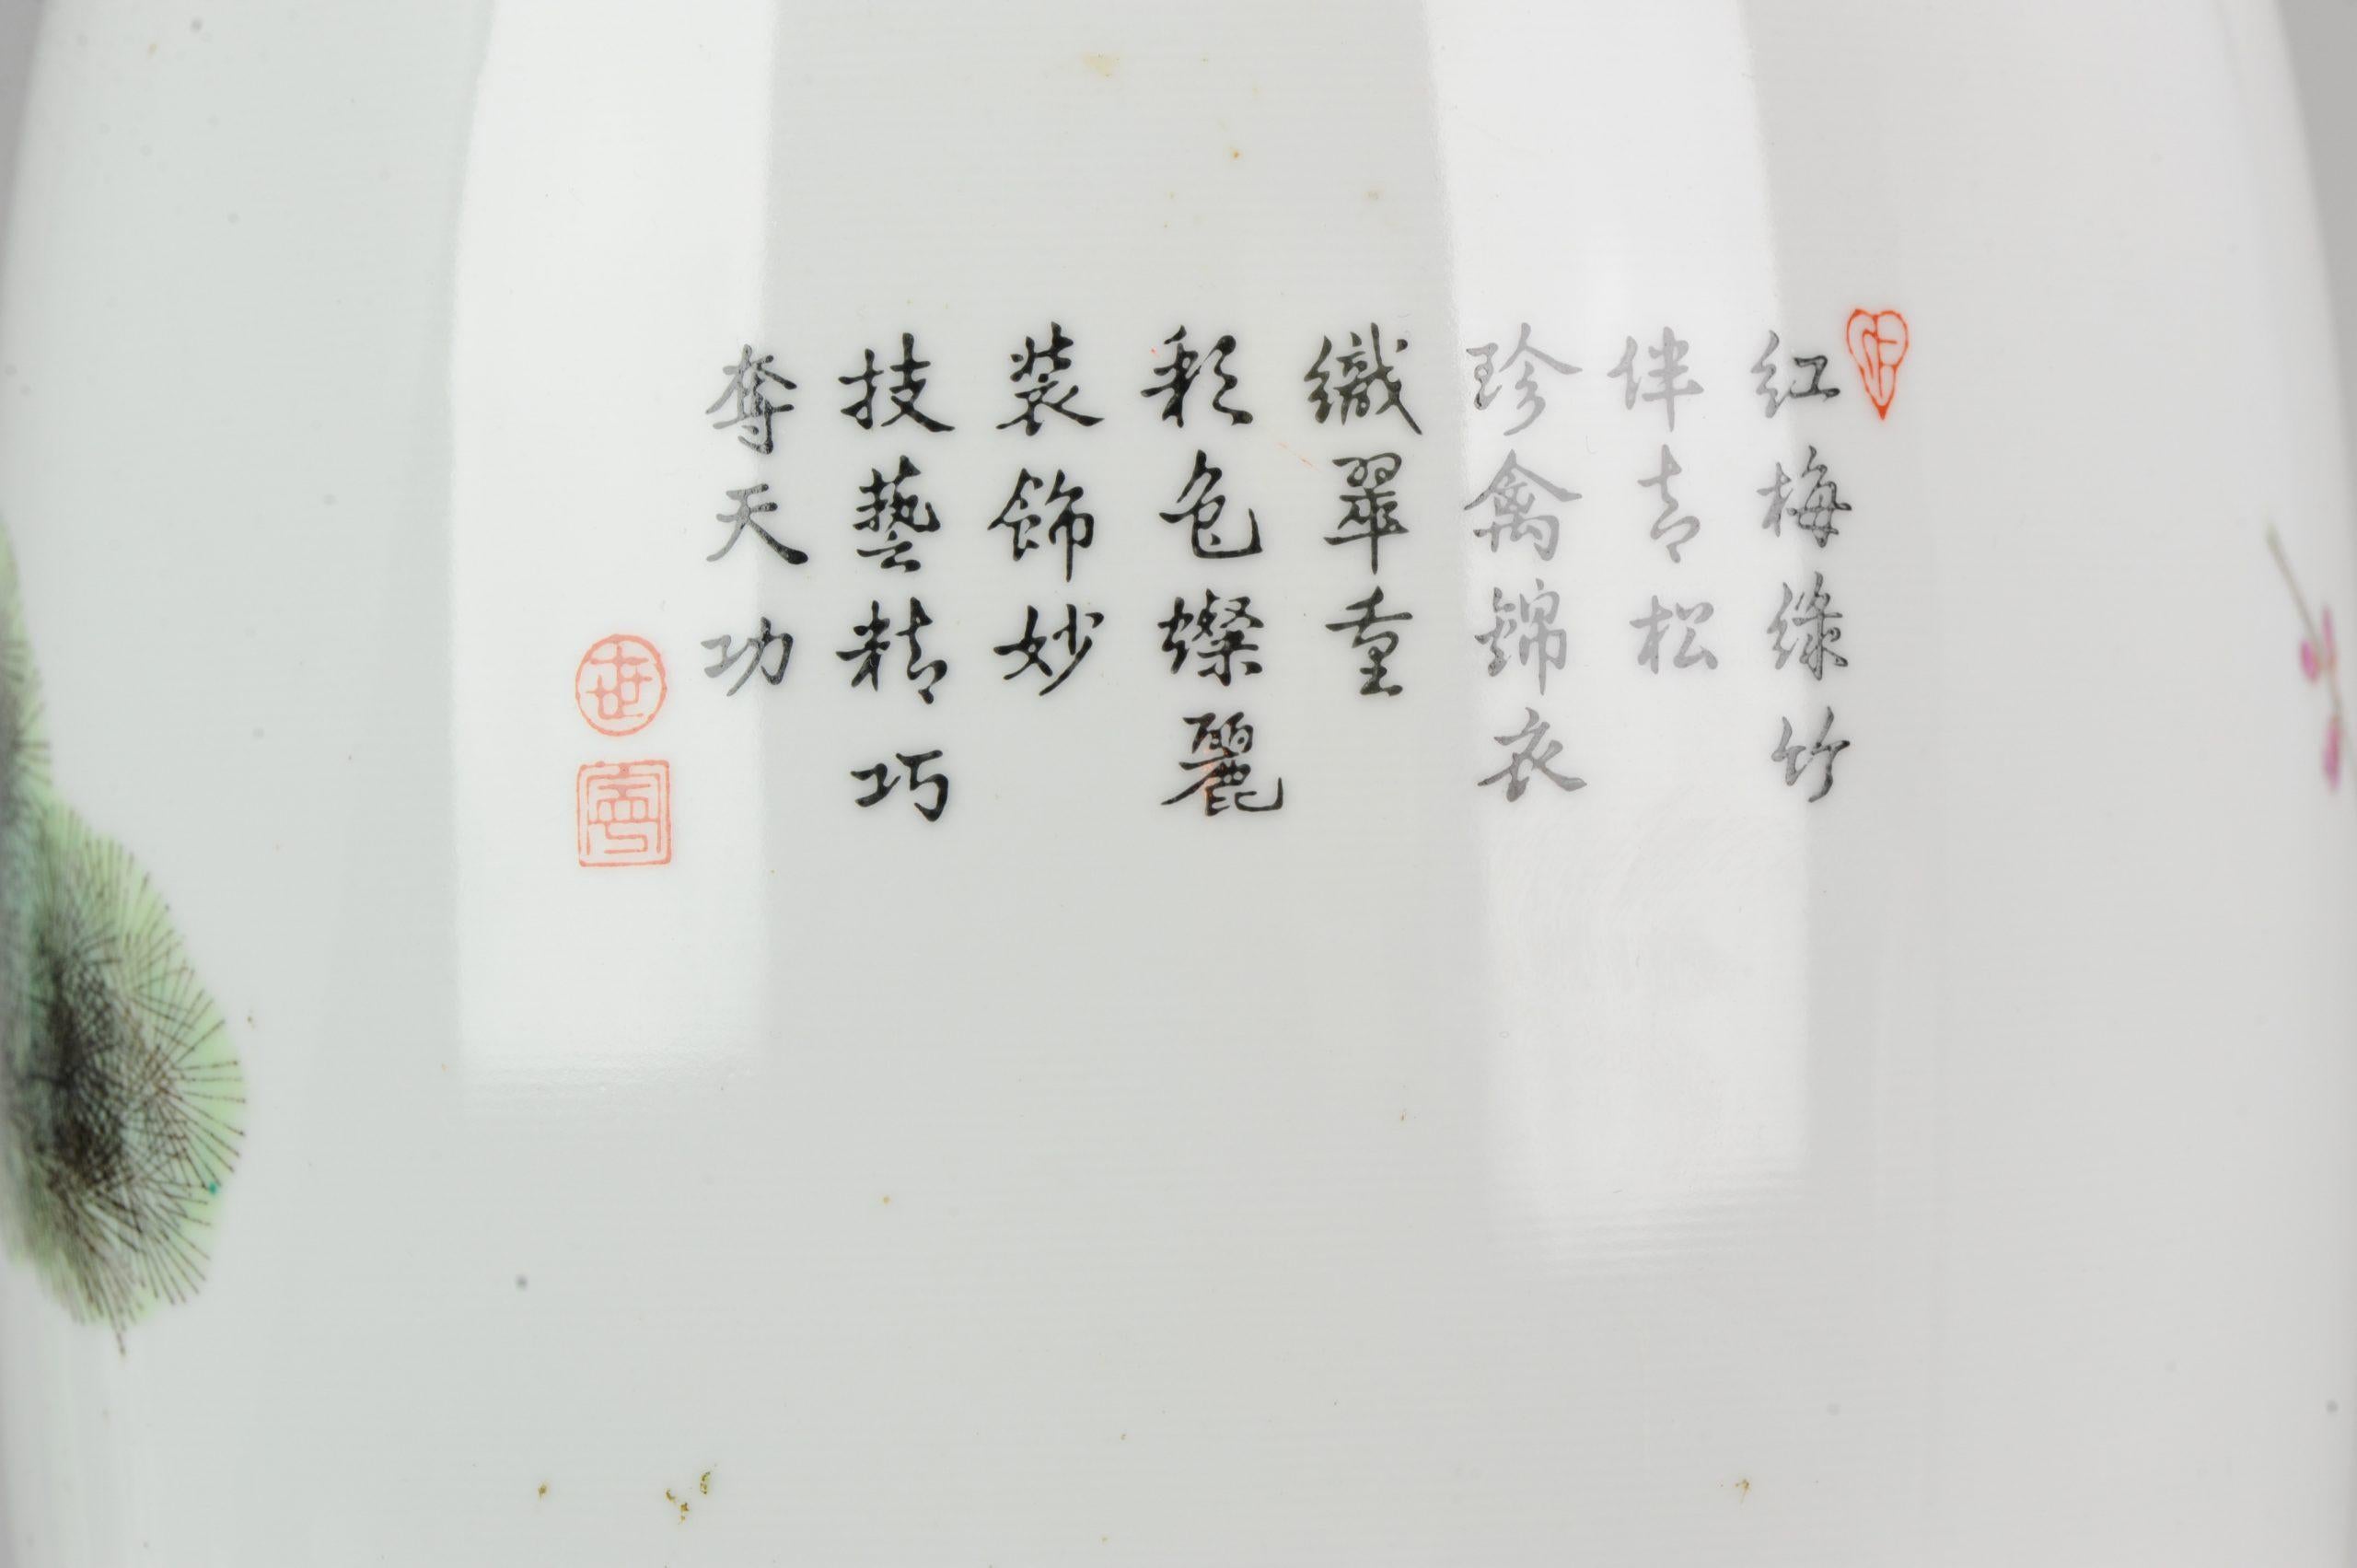 红梅綠竹
伴青松
珍禽錦衣
織翠重
彩色燦麗
装飾妙
技藝精巧
奪天功
世